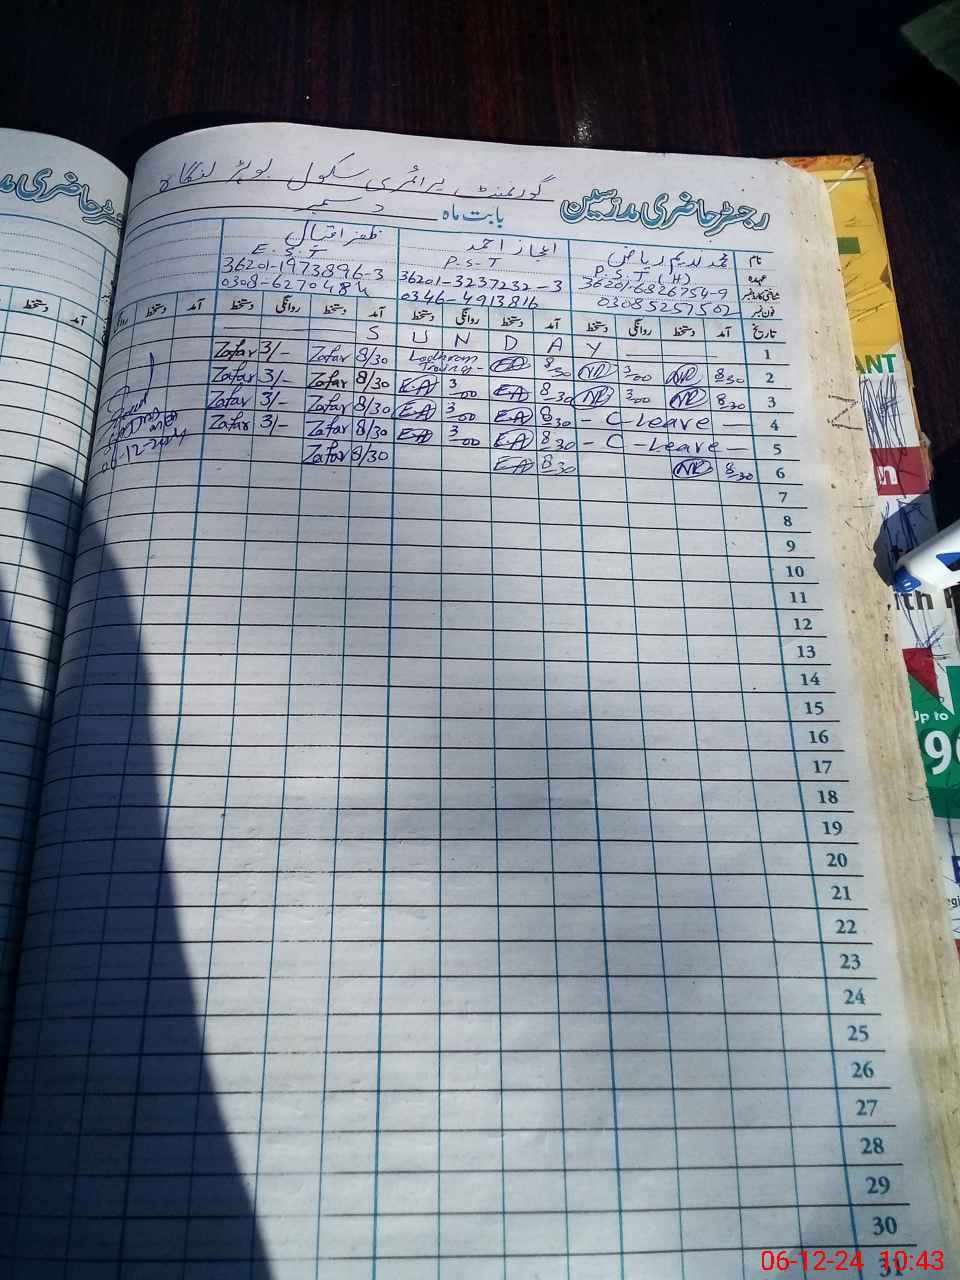 گورنمنٹ پرائمری سکول
رجسٹر حاضری مدرسین
بابت ماہ دسمبر
نام محمد ندیم ریاض اعجاز احمد ظفر اقبال
عہدہ P.S.T (H) P.S.T E.S.T
شناختی کارڈ نمبر 36201-6826754-9 36201-3237232-3 36201-1973896-3
فون نمبر 03085257502 0346-4913816
تاریخ آمد دستخط روانگی دستخط آمد دستخط روانگی دستخط آمد دستخط روانگی دستخط آمد دستخط روانگی
1 S U N D A Y
2 8/30 NR 3/00 NR 8/30 EA Lodhran 8/30 Zafar 3/- Zafar
3 8/30 NR 3/00 NR 8/30 EA 3/00 EA 8/30 Zafar 3/- Zafar
4 - C Leave - 8/30 EA 3/00 EA 8/30 Zafar 3/- Zafar
5 - C - Leave - 8/30 EA 3/00 EA 8/30 Zafar 3/- Zafar
6 8/30 NR 8/30 EA 8/30 Zafar
7
8
9
10
11
12
13
14
15
16
17
18
19
20
21
22
23
24
25
26
27
28
29
30
31
06-12-2024
رجسٹر حاضری
آمد دستخط روانگی
ANT
Up to
06-12-24 10:43